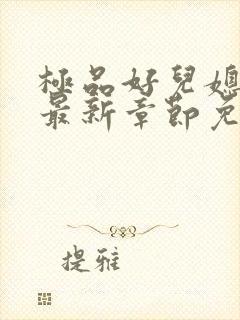 極品好兒媳
最新章節免
提雅